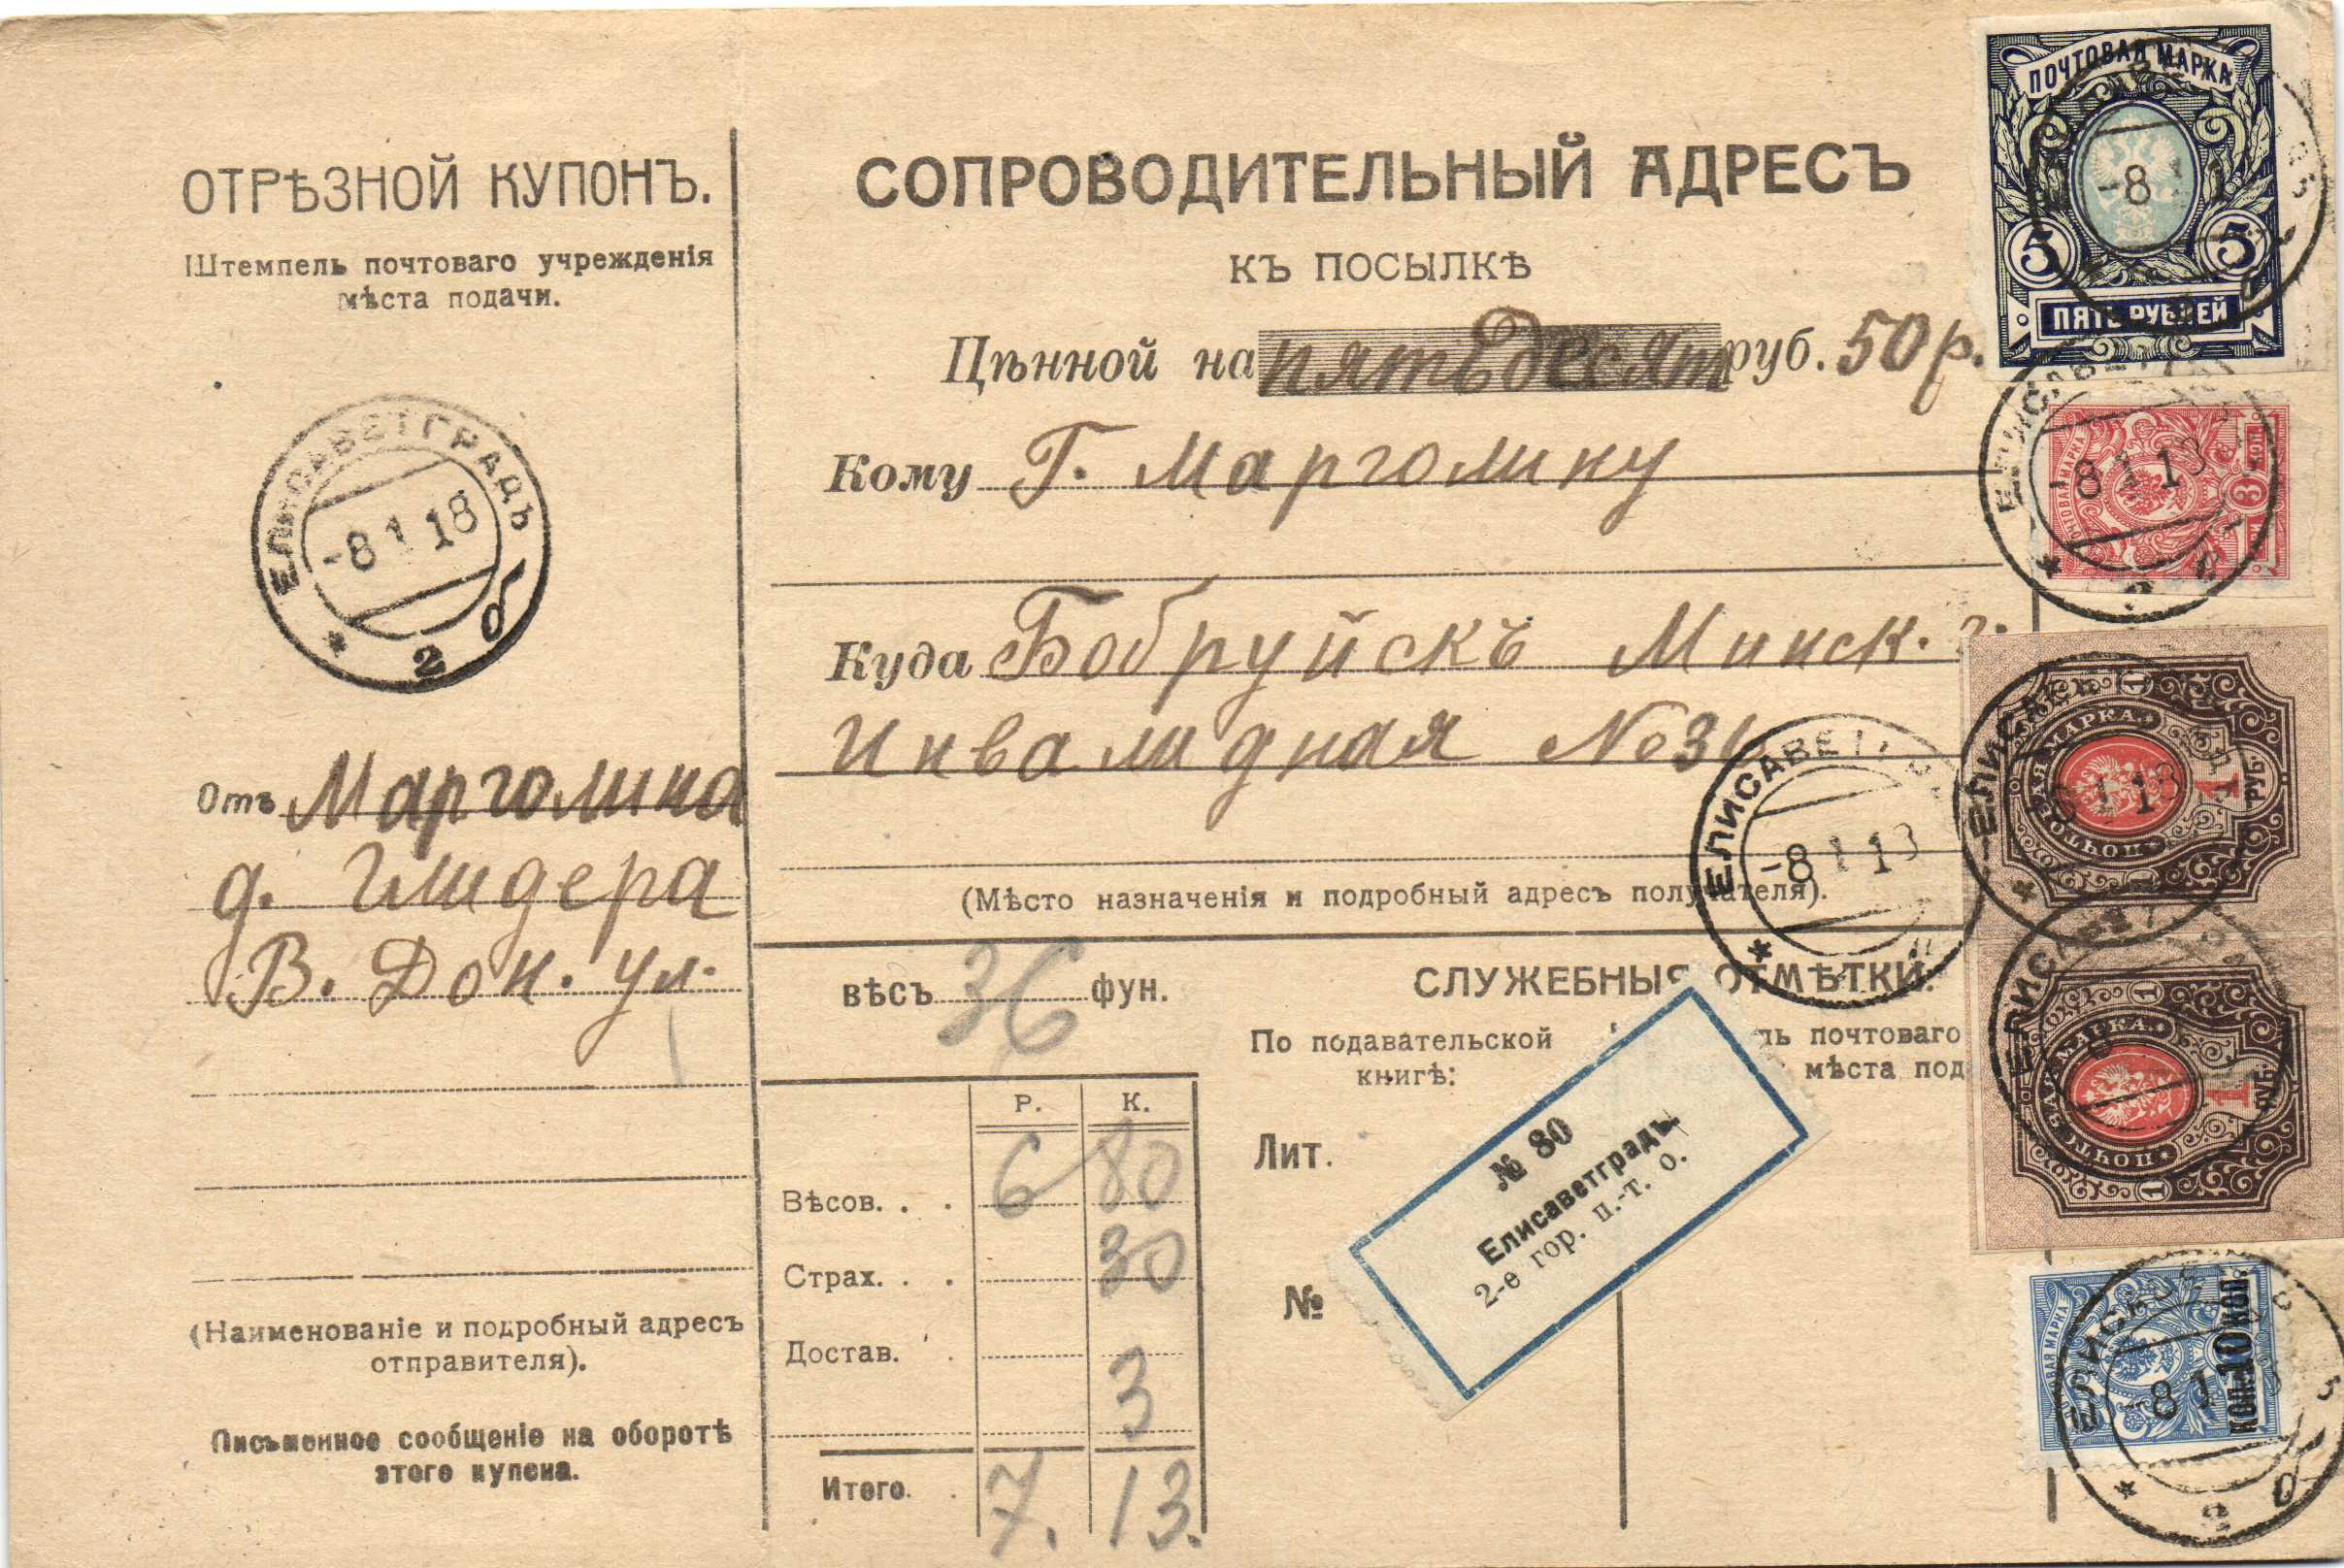 ОТРѢЗНОЙ КУПОНЪ.
Штемпель почтоваго учрежденія
мѣста подачи.
ЕЛИСАВЕТГРАДЪ
-8 1 18
* 2 б
Отъ Марголина
д. Глидера
В. Дон. ул.
(Наименованіе и подробный адресъ
отправителя).
Письменное сообщеніе на оборотѣ
этого купона.
СОПРОВОДИТЕЛЬНЫЙ АДРЕСЪ
КЪ ПОСЫЛКѢ
Цѣнной на пятьдесят руб. 50 р.
Кому Г. Марголину
Куда Бобруйскъ Минск. г.
Инвалидная №
(Мѣсто назначенія и подробный адресъ получателя).
ВѢСЪ 36 ФУН.
Р. К.
Вѣсов. . . 6 80
Страх. . . 30
Достав. . 3
Итого. . 7. 13.
СЛУЖЕБНЫЯ ОТМѢТКИ:
По подавательской
книгѣ:
Лит.
№
ль почтоваго
мѣста под
№ 80
Елисаветградъ
2-е гор. п.-т. о.
ЕЛИСАВЕТГ
-8 1 18
ПОЧТОВАЯ МАРКА
5 5
ПЯТЬ РУБЛЕЙ
-8 1 1
ЕЛИСАВЕТГ
-8 1 18
ПОЧТОВАЯ МАРКА
3 КОП
ЕЛИСАВ
8 1 18
ПОЧТОВАЯ МАРКА
1 РУБ.
ЕЛИСАВЕТ
ПОЧТОВАЯ МАРКА
1 РУБ.
ЕЛИСАВ
-8 1 1
КОП. 10 КОП.
* 2 б